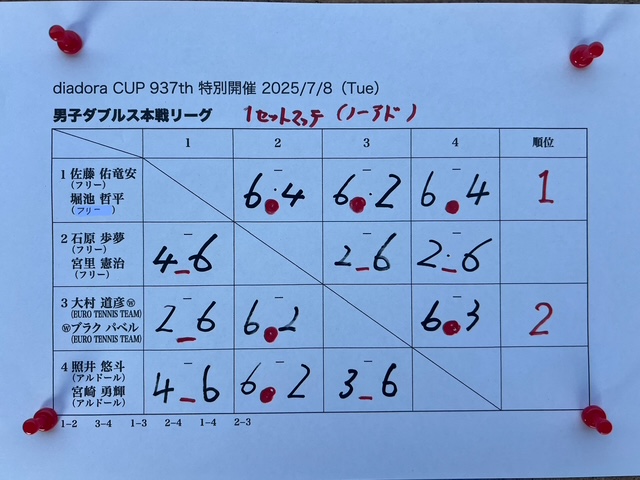 diadora CUP 937th 特別開催 2025/7/8（Tue）
男子ダブルス本戦リーグ 1セットマッチ（ノーアド）
1 2 3 4 順位
1 佐藤 佑竜安
（フリー）
堀池 哲平
（フリー）
6-4 6-2 6-4 1
2 石原 歩夢
（フリー）
宮里 憲治
（フリー）
4-6 2-6 2-6
3 大村 道彦Ⓦ
（EURO TENNIS TEAM）
Ⓦブラク パベル
（EURO TENNIS TEAM）
2-6 6-2 6-3 2
4 照井 悠斗
（アルドール）
宮崎 勇輝
（アルドール）
4-6 6-2 3-6
1-2 3-4 1-3 2-4 1-4 2-3